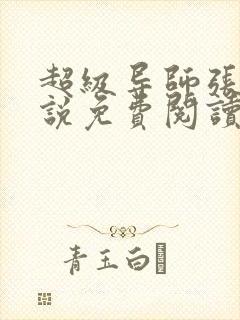 超級导師張
說免費閱讀
青玉白